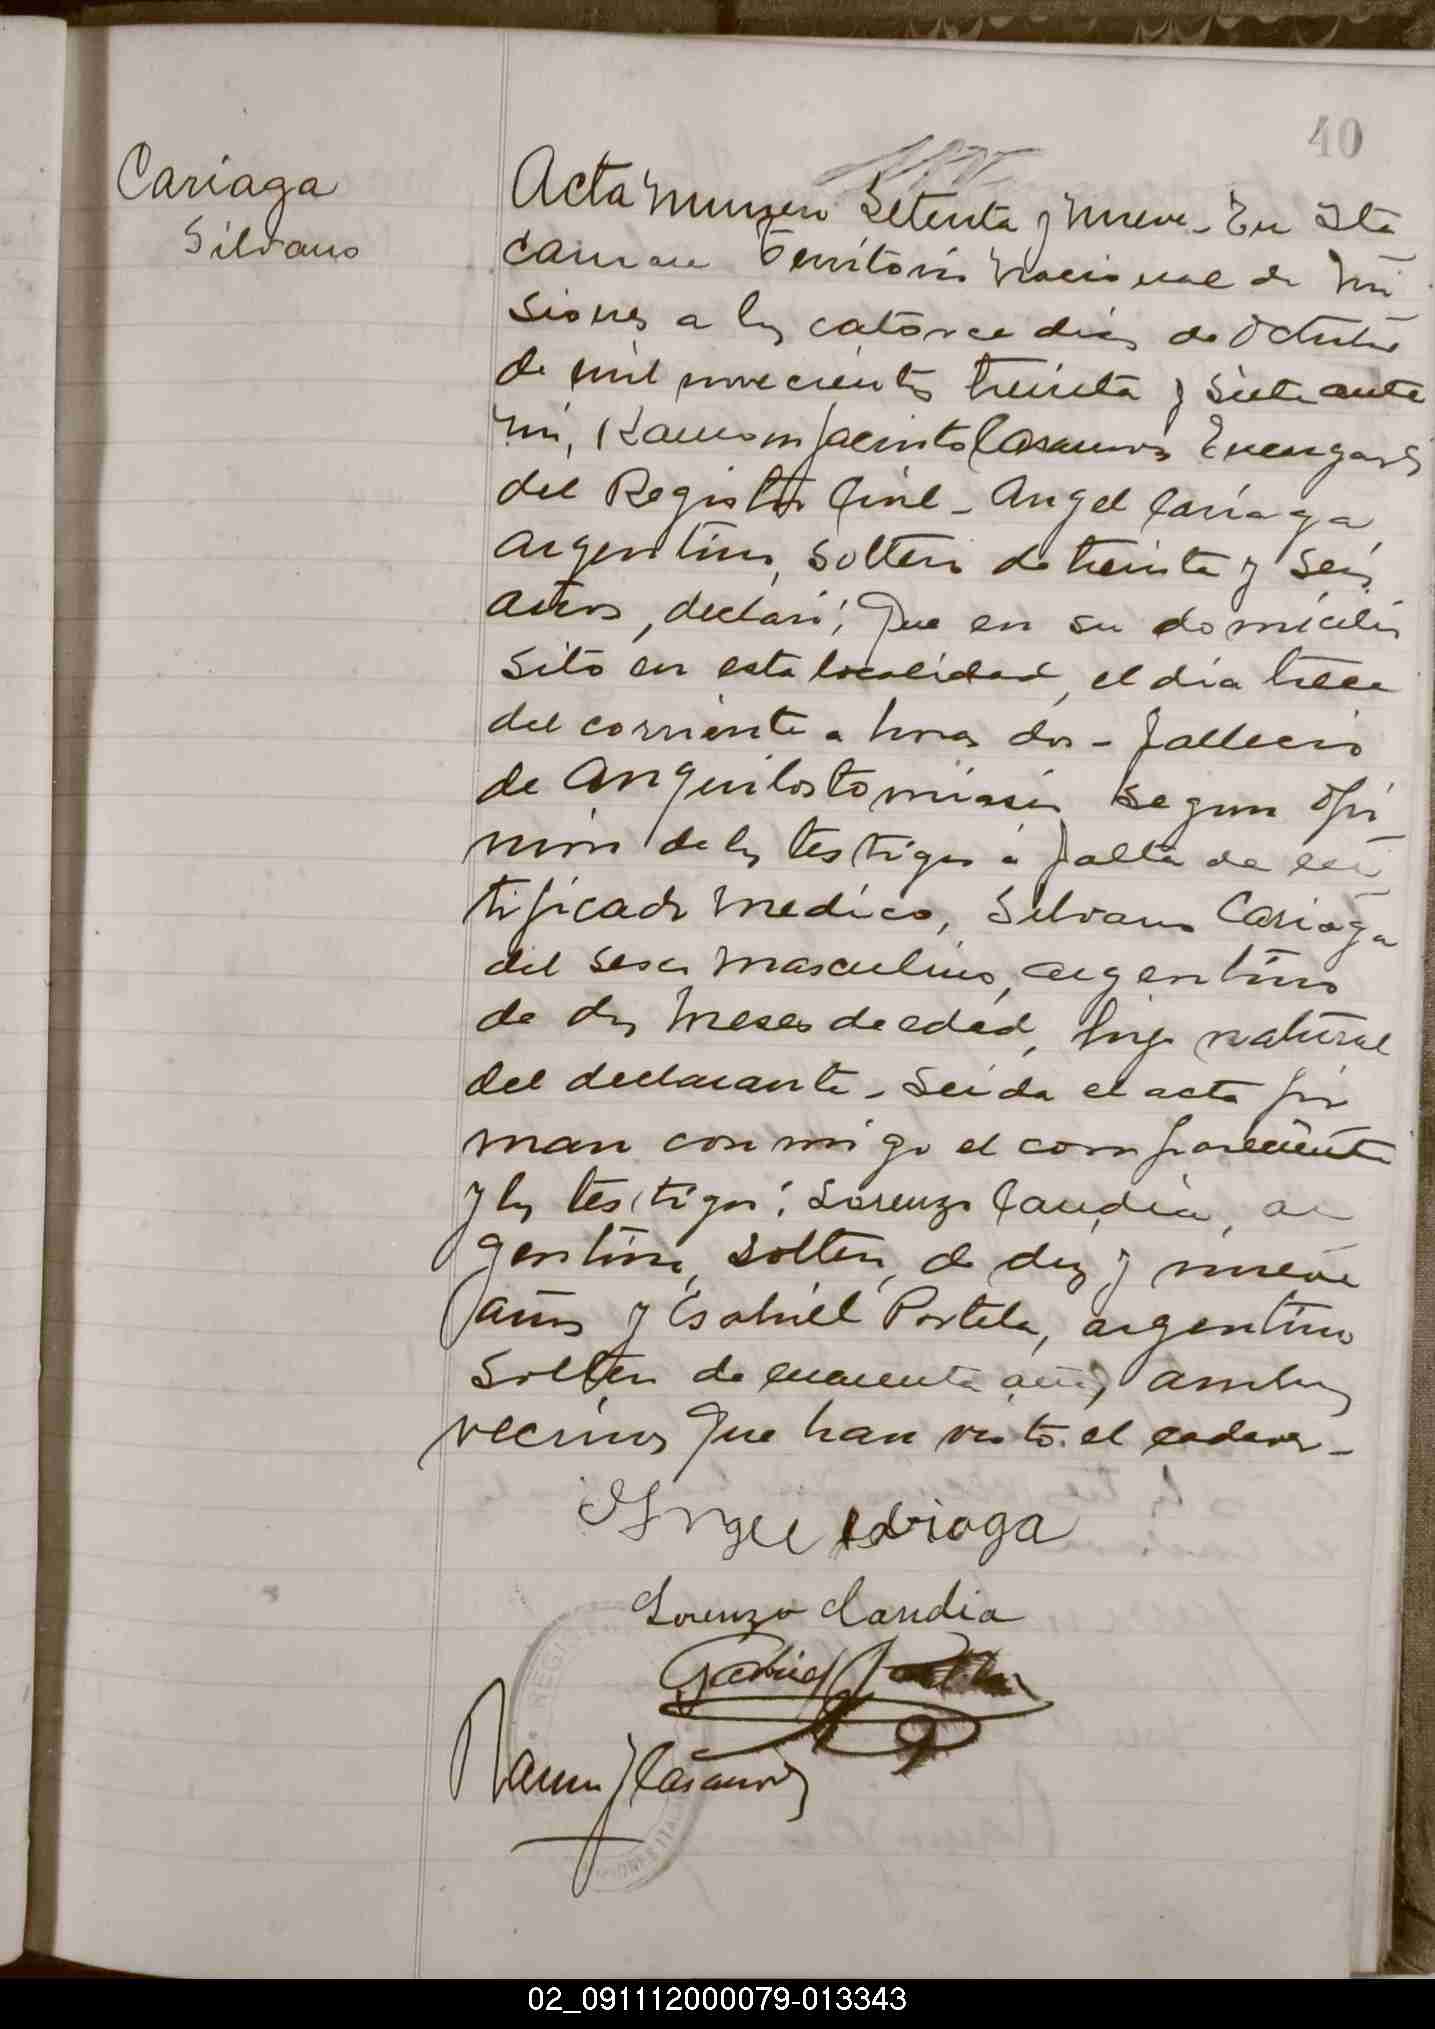 40
Cariaga
Silvano
Acta Numero Setenta y Nueve - En Ita
caruare Territorio Nacional de Mi
siones a los catorce dias de Octubre
de mil novecientos treinta y siete ante
mi, Ramon Jacinto Casanova Encargado
del Registro Civil - Angel Cariaga
argentino, soltero de treinta y seis
años, declaró; Que en su domicilio
sito en esta localidad, el dia trece
del corriente a horas dos - fallecio
de Anquilostomiasis segun opi
nion de los testigos a falta de cer
tificado medico, Silvano Cariaga
del sexo masculino, argentino
de dos meses de edad, hijo natural
del declarante - Leida el acta fir
man conmigo el compareciente
y los testigos; Lorenzo Candia, ar
gentino, soltero, de diez y nueve
años y Gabriel Portela, argentino
soltero de cincuenta años, ambos
vecinos que han visto el cadaver -
Angel Cariaga
Lorenzo Candia
Gabriel Portela
Ramon J Casanova
02_091112000079-013343